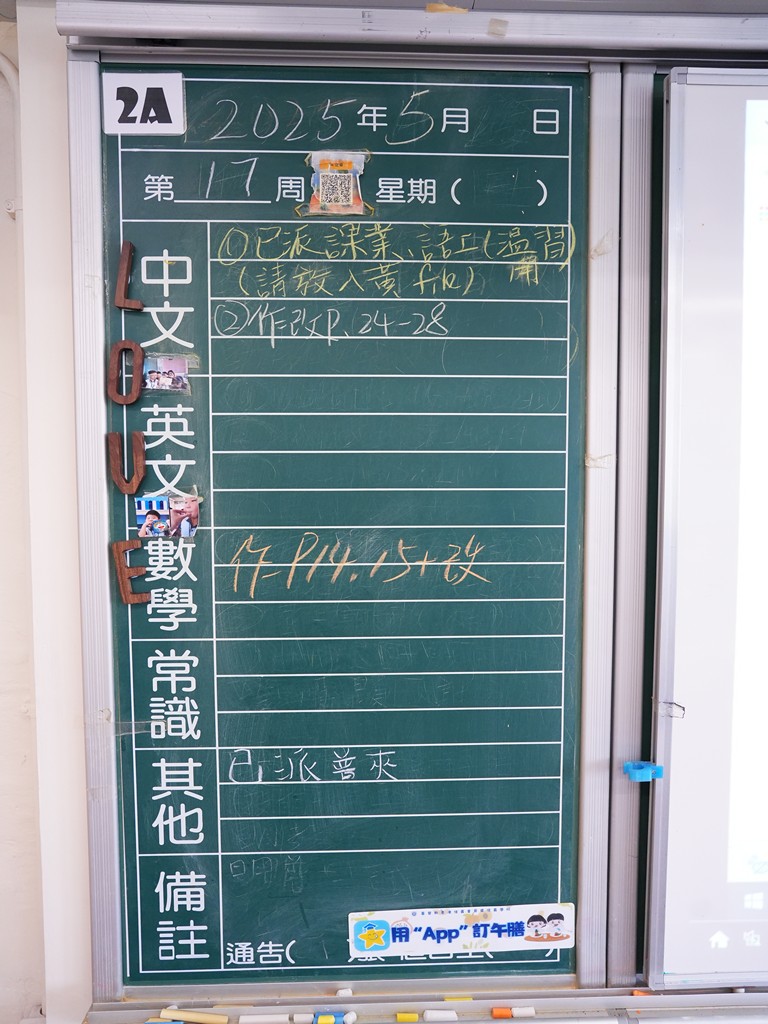 2A
2025年5月 日
第17周 星期( )
中文
①已派課業、語工(溫習用)
(請放入黃file)
②作改P.24-28
LOVE
英文
數學
作P14.15+改
常識
其他
已派普夾
備註
通告(
用“App”訂午膳